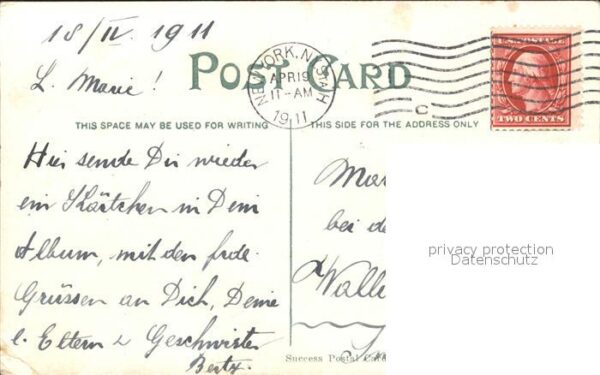 18/IV. 1911
L. Marie!
POST CARD
NEW YORK, N.Y. STA.H
APR 19
11-AM
1911
C
U.S. POSTAGE
TWO CENTS
THIS SPACE MAY BE USED FOR WRITING
THIS SIDE FOR THE ADDRESS ONLY
Hier sende Dir wieder
ein Kärtchen in Dein
Album, mit den
Grüssen an Dich, Deine
l. Eltern & Geschwister
Mar
bei de
Wall
privacy protection
Datenschutz
Success Postal Ca